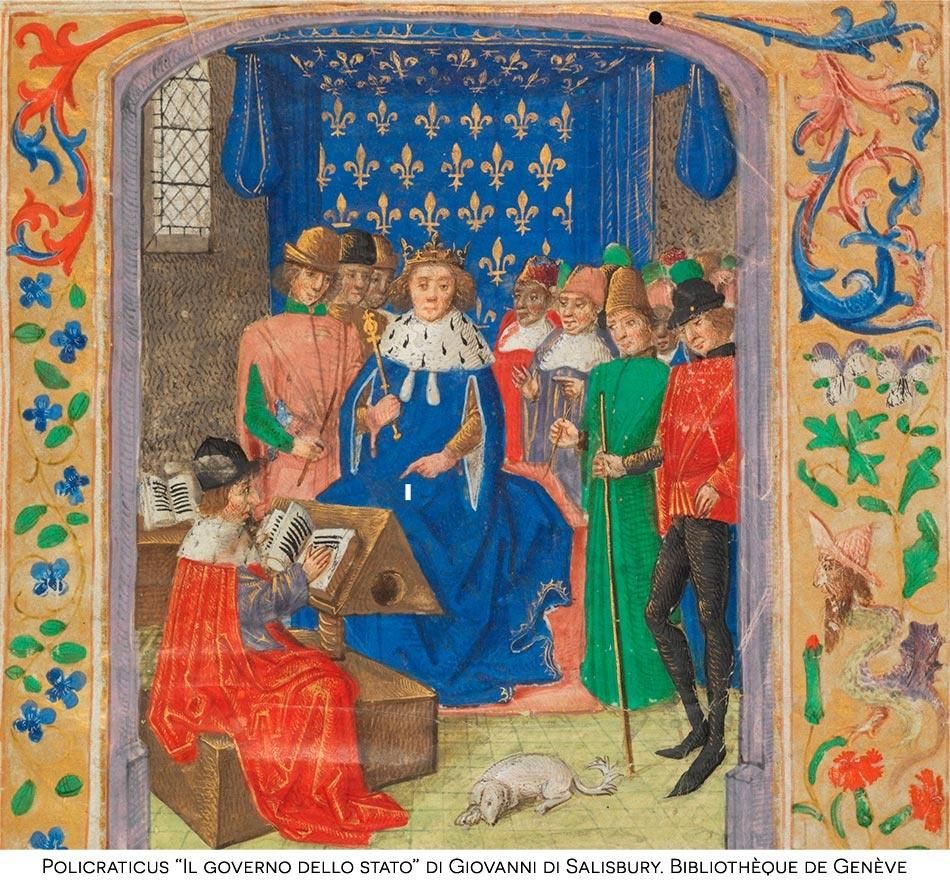 Policraticus “Il governo dello stato” di Giovanni di Salisbury. Bibliothèque de Genève